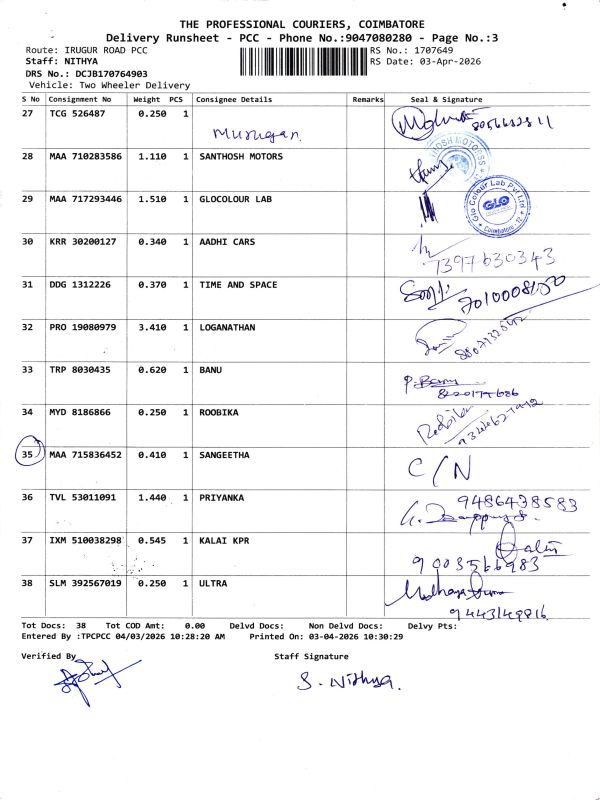 THE PROFESSIONAL COURIERS, COIMBATORE
Delivery Runsheet - PCC - Phone No.:9047080280 - Page No.:3
Route: IRUGUR ROAD PCC RS No.: 1707649
Staff: NITHYA RS Date: 03-Apr-2026
DRS No.: DCJB170764903
Vehicle: Two Wheeler Delivery
S No Consignment No Weight PCS Consignee Details Remarks Seal & Signature
27 TCG 526487 0.250 1
Murugan
28 MAA 710283586 1.110 1 SANTHOSH MOTORS
29 MAA 717293446 1.510 1 GLOCOLOUR LAB
Glo Colour Lab Pvt Ltd
GLO
Coimbatore - 12
30 KRR 30200127 0.340 1 AADHI CARS
7397630343
31 DDG 1312226 0.370 1 TIME AND SPACE
32 PRO 19080979 3.410 1 LOGANATHAN
33 TRP 8030435 0.620 1 BANU
P. Banu
34 MYD 8186866 0.250 1 ROOBIKA
Roobika
35 MAA 715836452 0.410 1 SANGEETHA
C/N
36 TVL 53011091 1.440 1 PRIYANKA
9486438583
37 IXM 510038298 0.545 1 KALAI KPR
9003566983
38 SLM 392567019 0.250 1 ULTRA
9443149816
Tot Docs: 38 Tot COD Amt: 0.00 Delvd Docs: Non Delvd Docs: Delvy Pts:
Entered By :TPCPCC 04/03/2026 10:28:20 AM Printed On: 03-04-2026 10:30:29
Verified By Staff Signature
S. Nithya.